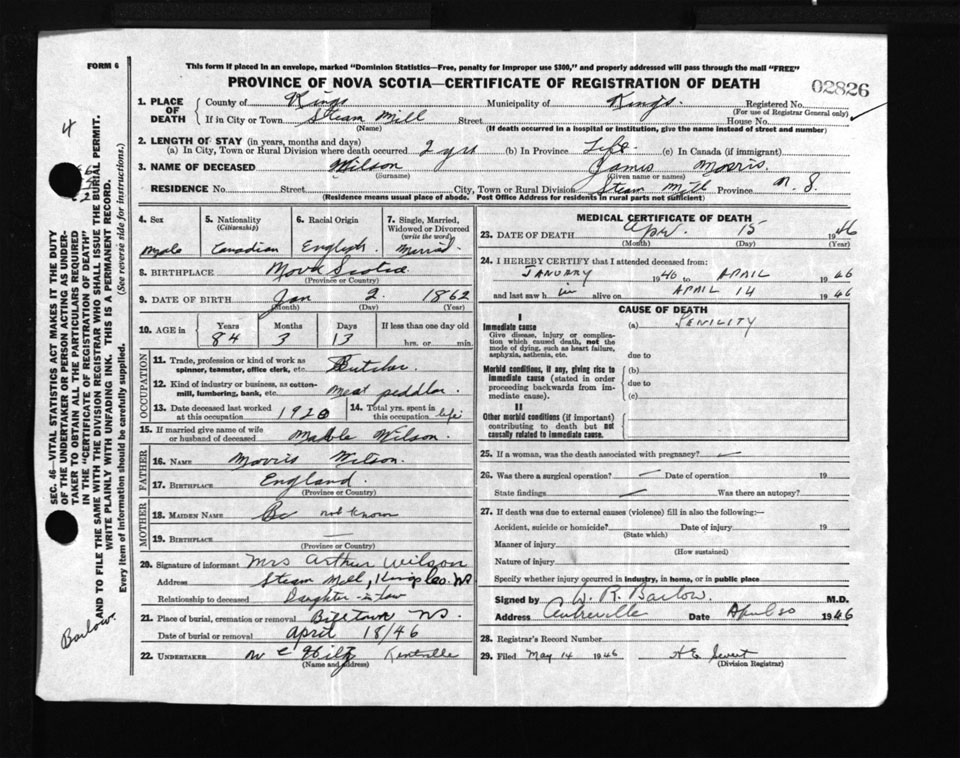 FORM 6
This form if placed in an envelope, marked "Dominion Statistics—Free, penalty for improper use $300," and properly addressed will pass through the mail "FREE"
PROVINCE OF NOVA SCOTIA—CERTIFICATE OF REGISTRATION OF DEATH
02826
1. PLACE OF DEATH
County of Kings Municipality of Kings. Registered No.
(For use of Registrar General only)
If in City or Town Steam Mill Street House No.
(Name) (If death occurred in a hospital or institution, give the name instead of street and number)
2. LENGTH OF STAY (in years, months and days)
(a) In City, Town or Rural Division where death occurred 2 yrs (b) In Province Life. (c) In Canada (if immigrant)
3. NAME OF DECEASED Wilson James Morris.
(Surname) (Given name or names)
RESIDENCE No. Street City, Town or Rural Division Steam Mill Province N. S.
(Residence means usual place of abode. Post Office Address for residents in rural parts not sufficient)
4. Sex
Male
5. Nationality
(Citizenship)
Canadian
6. Racial Origin
English.
7. Single, Married, Widowed or Divorced
(write the word)
Married
8. BIRTHPLACE Nova Scotia
(Province or Country)
9. DATE OF BIRTH Jan 2. 1862
(Month) (Day) (Year)
10. AGE in Years Months Days If less than one day old
84 3 13 hrs. or min.
OCCUPATION
11. Trade, profession or kind of work as spinner, teamster, office clerk, etc. Butcher.
12. Kind of industry or business, as cotton-mill, lumbering, bank, etc. Meat peddler.
13. Date deceased last worked at this occupation 1920
14. Total yrs. spent in this occupation life
15. If married give name of wife or husband of deceased Mable Wilson.
FATHER
16. NAME Morris Wilson.
17. BIRTHPLACE England.
(Province or Country)
MOTHER
18. MAIDEN NAME not known
19. BIRTHPLACE —
(Province or Country)
20. Signature of informant Mrs Arthur Wilson
Address Steam Mill, Kings Co. NS
Relationship to deceased Daughter-in-law
21. Place of burial, cremation or removal NS.
Date of burial or removal April 18/46
22. UNDERTAKER Kentville
(Name and address)
MEDICAL CERTIFICATE OF DEATH
23. DATE OF DEATH Apr. 15 1946
(Month) (Day) (Year)
24. I HEREBY CERTIFY that I attended deceased from:
JANUARY 1946 to APRIL 1946
and last saw him alive on APRIL 14 1946
CAUSE OF DEATH
I
Immediate cause
Give disease, injury or complication which caused death, not the mode of dying, such as heart failure, asphyxia, asthenia, etc.
(a) SENILITY
due to
Morbid conditions, if any, giving rise to immediate cause (stated in order proceeding backwards from immediate cause).
(b)
due to
(c)
II
Other morbid conditions (if important) contributing to death but not causally related to immediate cause.
25. If a woman, was the death associated with pregnancy? —
26. Was there a surgical operation? — Date of operation 19
State findings — Was there an autopsy?
27. If death was due to external causes (violence) fill in also the following:—
Accident, suicide or homicide? Date of injury 19
(State which)
Manner of injury
(How sustained)
Nature of injury
Specify whether injury occurred in industry, in home, or in public place
Signed by W. R. Barlow. M.D.
Address Centreville Date April 20 1946
28. Registrar's Record Number
29. Filed May 14 1946
(Division Registrar)
4
SEC. 46—VITAL STATISTICS ACT MAKES IT THE DUTY OF THE UNDERTAKER OR PERSON ACTING AS UNDERTAKER TO OBTAIN ALL THE PARTICULARS REQUIRED IN THE "CERTIFICATE OF REGISTRATION OF DEATH" AND TO FILE THE SAME WITH THE DIVISION REGISTRAR WHO SHALL ISSUE THE BURIAL PERMIT.
WRITE PLAINLY WITH UNFADING INK. THIS IS A PERMANENT RECORD.
Every item of information should be carefully supplied. (See reverse side for instructions.)
Barlow.